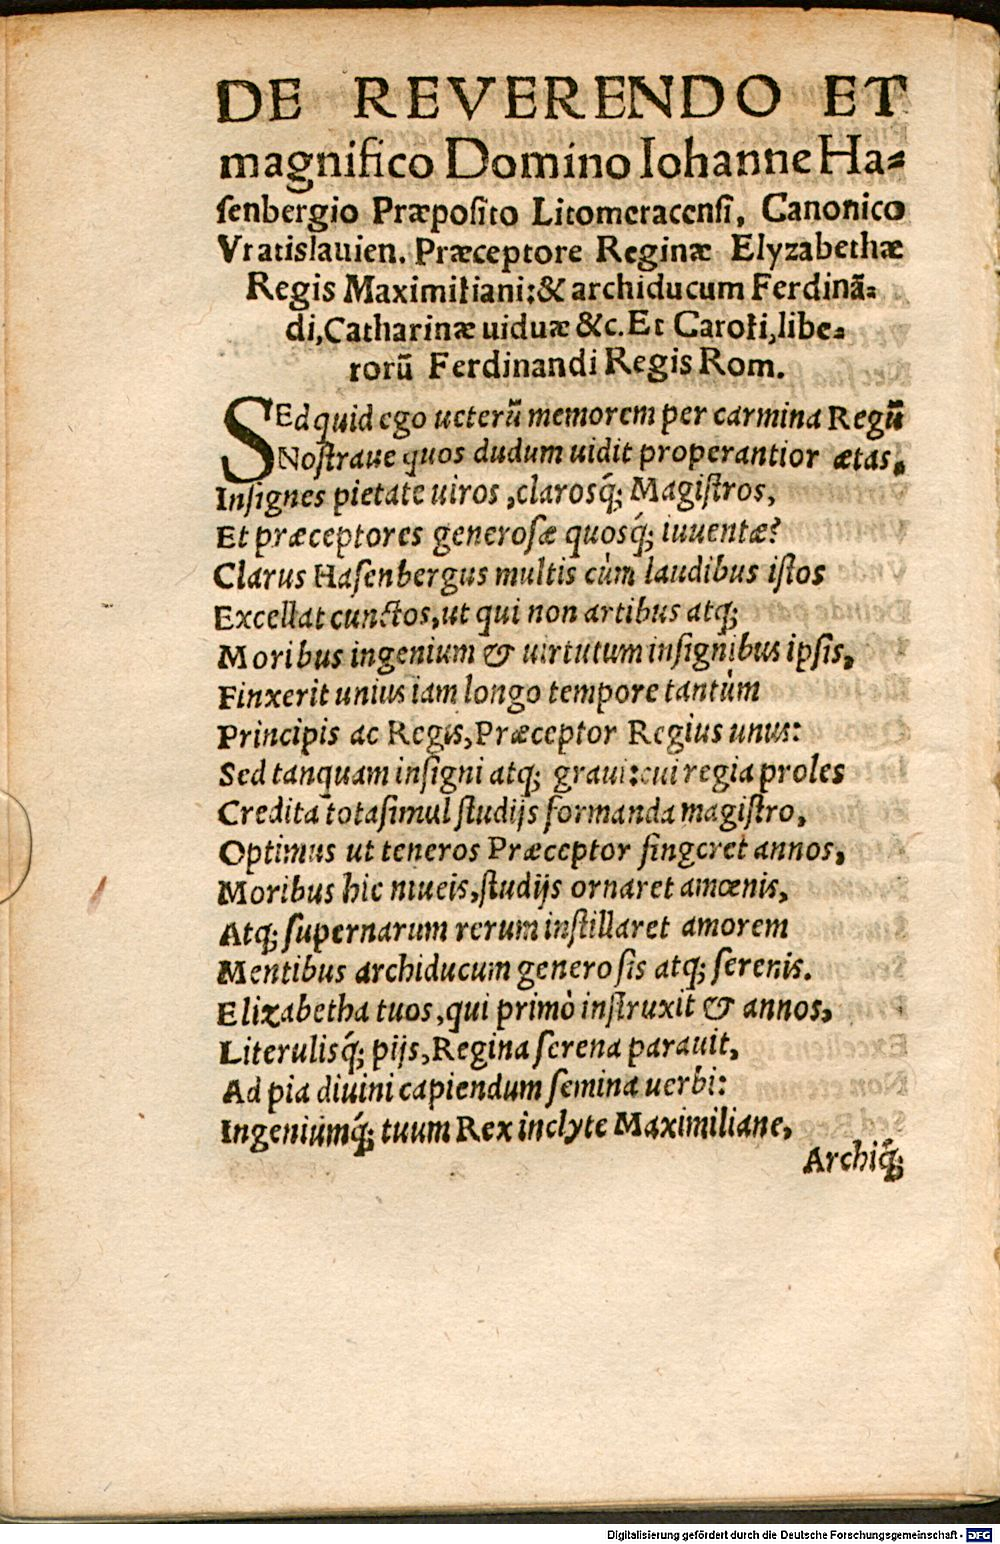 DE REVERENDO ET
magnifico Domino Iohanne Ha⸗
ſenbergio Præpoſito Litomeracenſi, Canonico
Vratislauien. Præceptore Reginæ Elyzabethæ
Regis Maximiliani:& archiducum Ferdinã⸗
di,Catharinæ uiduæ &c. Et Caroli,libe⸗
rorũ Ferdinandi Regis Rom.
SEd quid ego ueterũ memorem per carmina Regũ
Noſtraue quos dudum uidit properantior ætas,
Inſignes pietate uiros ,clarosq́; Magiſtros,
Et præceptores generoſæ quosq́; iuuentæ?
Clarus Haſenbergus multis cùm laudibus iſtos
Excellat cunctos,ut qui non artibus atq;
Moribus ingenium & uirtutum inſignibus ipſis,
Finxerit unius iam longo tempore tantùm
Principis ac Regis,Præceptor Regius unus:
Sed tanquam inſigni atq; graui:cui regia proles
Credita tota ſimul ſtudijs formanda magiſtro,
Optimus ut teneros Præceptor fingeret annos,
Moribus hic niueis,ſtudijs ornaret amœnis,
Atq; ſupernarum rerum inſtillaret amorem
Mentibus archiducum generoſis atq; ſerenis.
Elizabetha tuos,qui primò inſtruxit & annos,
Literulisq́; pijs,Regina ſerena parauit,
Ad pia diuini capiendum ſemina uerbi:
Ingeniumq́; tuum Rex inclyte Maximiliane,
Archiq́;
Digitalisierung gefördert durch die Deutsche Forschungsgemeinschaft - DFG